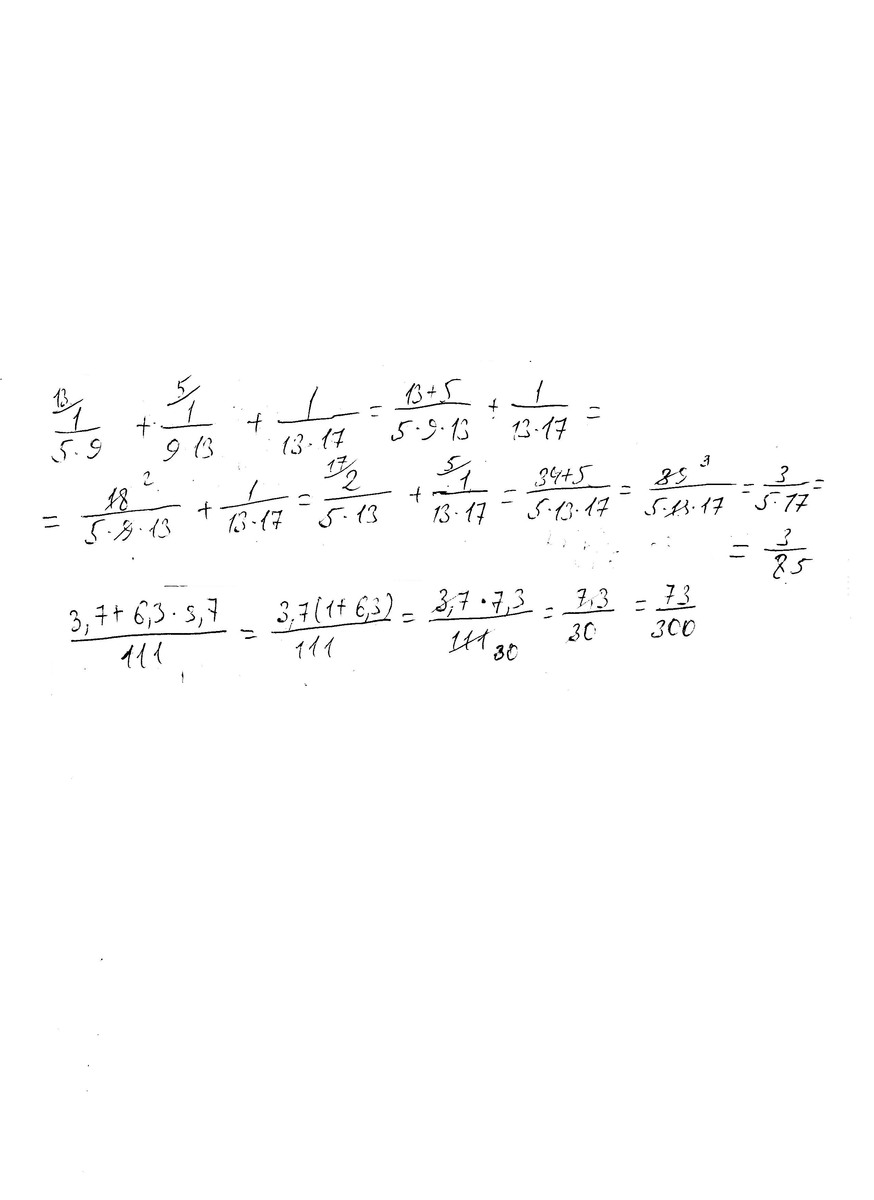 13/ 1/(5·9) + 5/ 1/(9 13) + 1/(13·17) = (13+5)/(5·9·13) + 1/(13·17) =
= 18 2/(5·9·13) + 1/(13·17) = 17/ 2/(5·13) + 5/ 1/(13·17) = (34+5)/(5·13·17) = 39 3/(5·13·17) = 3/(5·17) =
= 3/85
(3,7+6,3·3,7)/111 = 3,7(1+6,3)/111 = (3,7·7,3)/111 30 = 7,3/30 = 73/300